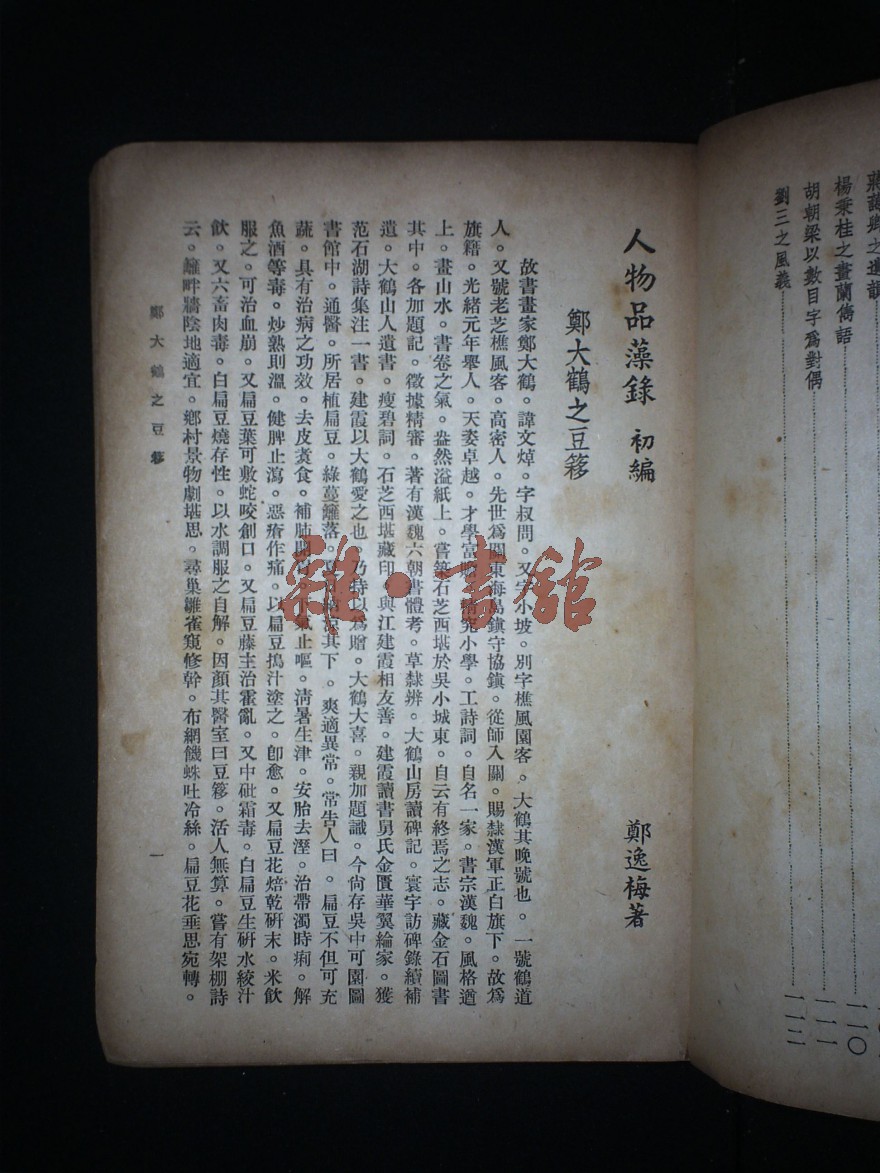 楊秉桂之畫蘭雋語
一一〇
胡朝梁以數目字爲對偶
一一一
劉三之風義
一一二
人物品藻錄 初編
鄭逸梅著
鄭大鶴之豆簃
故書畫家鄭大鶴。諱文焯。字叔問。又字小坡。別字樵風園客。大鶴其晚號也。一號鶴道
人。又號老芝樵風客。高密人。先世爲關東海島鎮守協鎮。從師入關。賜隸漢軍正白旗下。故爲
旗籍。光緒元年舉人。天姿卓越。才學富 究小學。工詩詞。自名一家。書宗漢魏。風格遒
上。畫山水。書卷之氣。盎然溢紙上。嘗築石芝西堪於吳小城東。自云有終焉之志。藏金石圖書
其中。各加題記。徵據精審。著有漢魏六朝書體考。草隸辨。大鶴山房讀碑記。寰宇訪碑錄續補
遺。大鶴山人遺書。瘦碧詞。石芝西堪藏印。與江建霞相友善。建霞讀書舅氏金匱華翼綸家。獲
范石湖詩集注一書。建霞以大鶴愛之也。乃特以爲贈。大鶴大喜。親加題識。今尙存吳中可園圖
書館中。通醫。所居植扁豆。綠蔓籬落。 其下。爽適異常。常告人曰。扁豆不但可充
蔬。具有治病之功效。去皮煑食。補肺開 氣止嘔。淸暑生津。安胎去溼。治帶濁時痢。解
魚酒等毒。炒熟則溫。健脾止瀉。惡瘡作痛。以扁豆搗汁塗之。卽愈。又扁豆花焙乾硏末。米飮
服之。可治血崩。又扁豆葉可敷蛇咬創口。又扁豆藤主治霍亂。又中砒霜毒。白扁豆生硏水絞汁
飮。又六畜肉毒。白扁豆燒存性。以水調服之自解。因顏其醫室曰豆簃。活人無算。嘗有架棚詩
云。籬畔牆陰地適宜。鄉村景物劇堪思。尋巢雛雀窺修幹。布網饑蛛吐冷絲。扁豆花垂思宛轉。
鄭大鶴之豆簃
一
雜·書館